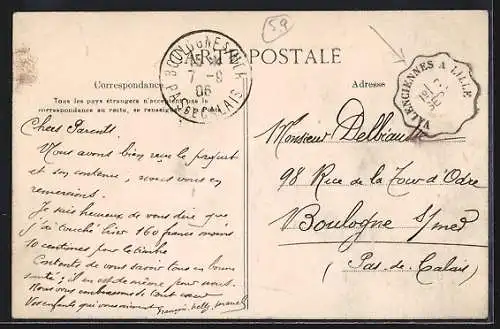 59
CARTE POSTALE
Correspondance
Adresse
Tous les pays étrangers n'acceptent pas la
correspondance au recto, se renseigner
BOULOGNE-SUR-MER
7-9
06
PAS-DE-CALAIS
VALENCIENNES A LILLE
Chers Parents.
Nous avons bien reçu le
et son contenu, nous vous en
remercions.
Je suis heureux de vous dire que
j'ai touché hier 160 francs moins
10 centimes pour le timbre
Contents de vous savoir tous en bonne
santé; il en est de même pour nous.
Nous vous embrassons de tout cœur
Vos enfants qui vous aiment
Monsieur
98 Rue de la Tour d'Odre
Boulogne s/mer
(Pas-de-Calais)